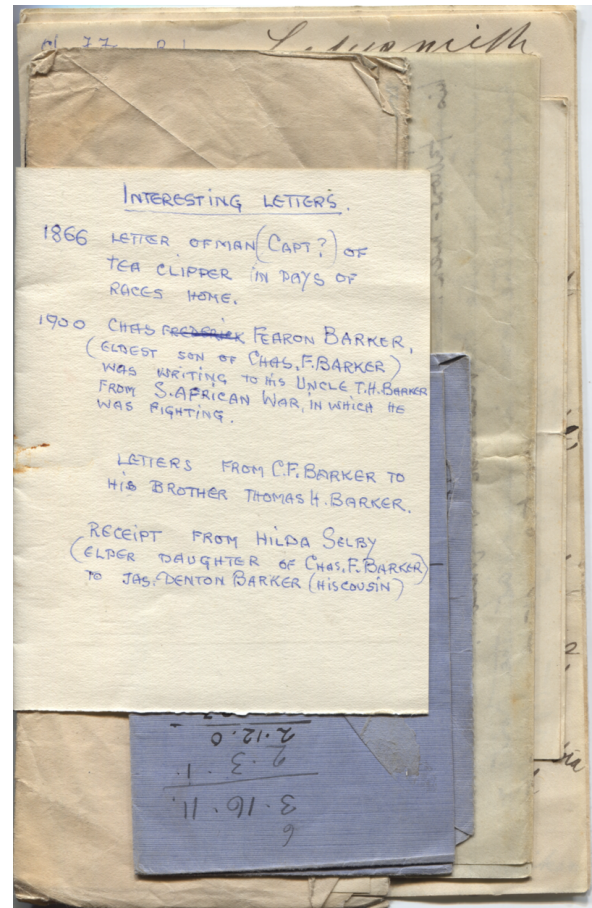 Ladysmith
INTERESTING LETTERS.
1866 LETTER OF MAN (CAPT?) OF
TEA CLIPPER IN DAYS OF
RACES HOME.
1900 CHAS FREDERICK FEARON BARKER,
(ELDEST SON OF CHAS. F. BARKER)
WAS WRITING TO HIS UNCLE T.H. BARKER
FROM S. AFRICAN WAR, IN WHICH HE
WAS FIGHTING.
LETTERS FROM C.F. BARKER TO
HIS BROTHER THOMAS H. BARKER.
RECEIPT FROM HILDA SELBY
(ELDER DAUGHTER OF CHAS. F. BARKER)
TO JAS. DENTON BARKER (HIS COUSIN)
6
3.16.11
2.3.1
2.12.0